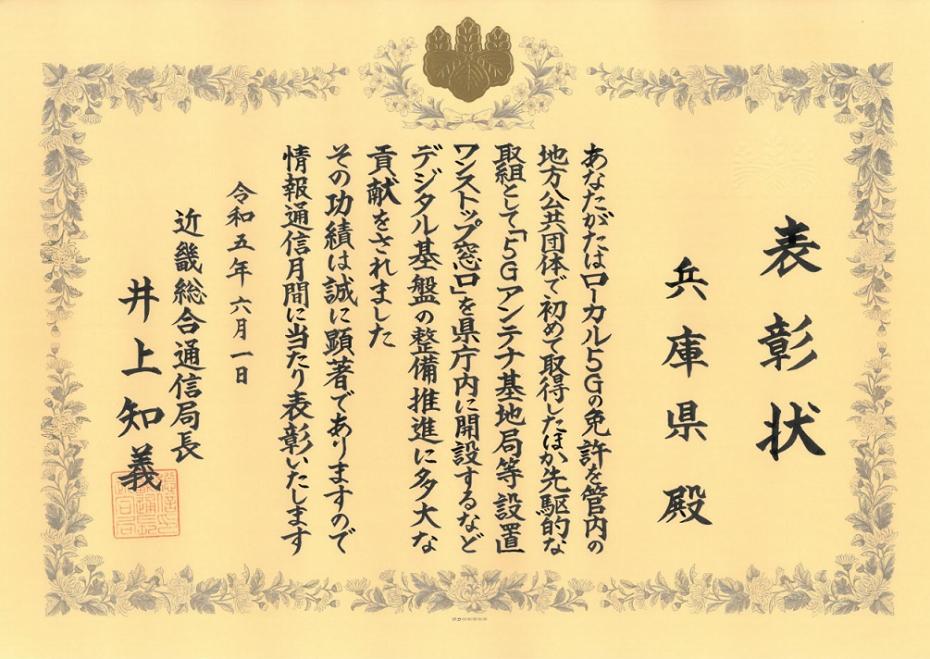 表彰状
兵庫県殿
あなたがたはローカル5Gの免許を管内の
地方公共団体で初めて取得したほか先駆的な
取組として「5Gアンテナ基地局等設置
ワンストップ窓口」を県庁内に開設するなど
デジタル基盤の整備推進に多大な
貢献をされました
その功績は誠に顕著でありますので
情報通信月間に当たり表彰いたします
令和五年六月一日
近畿総合通信局長
井上知義